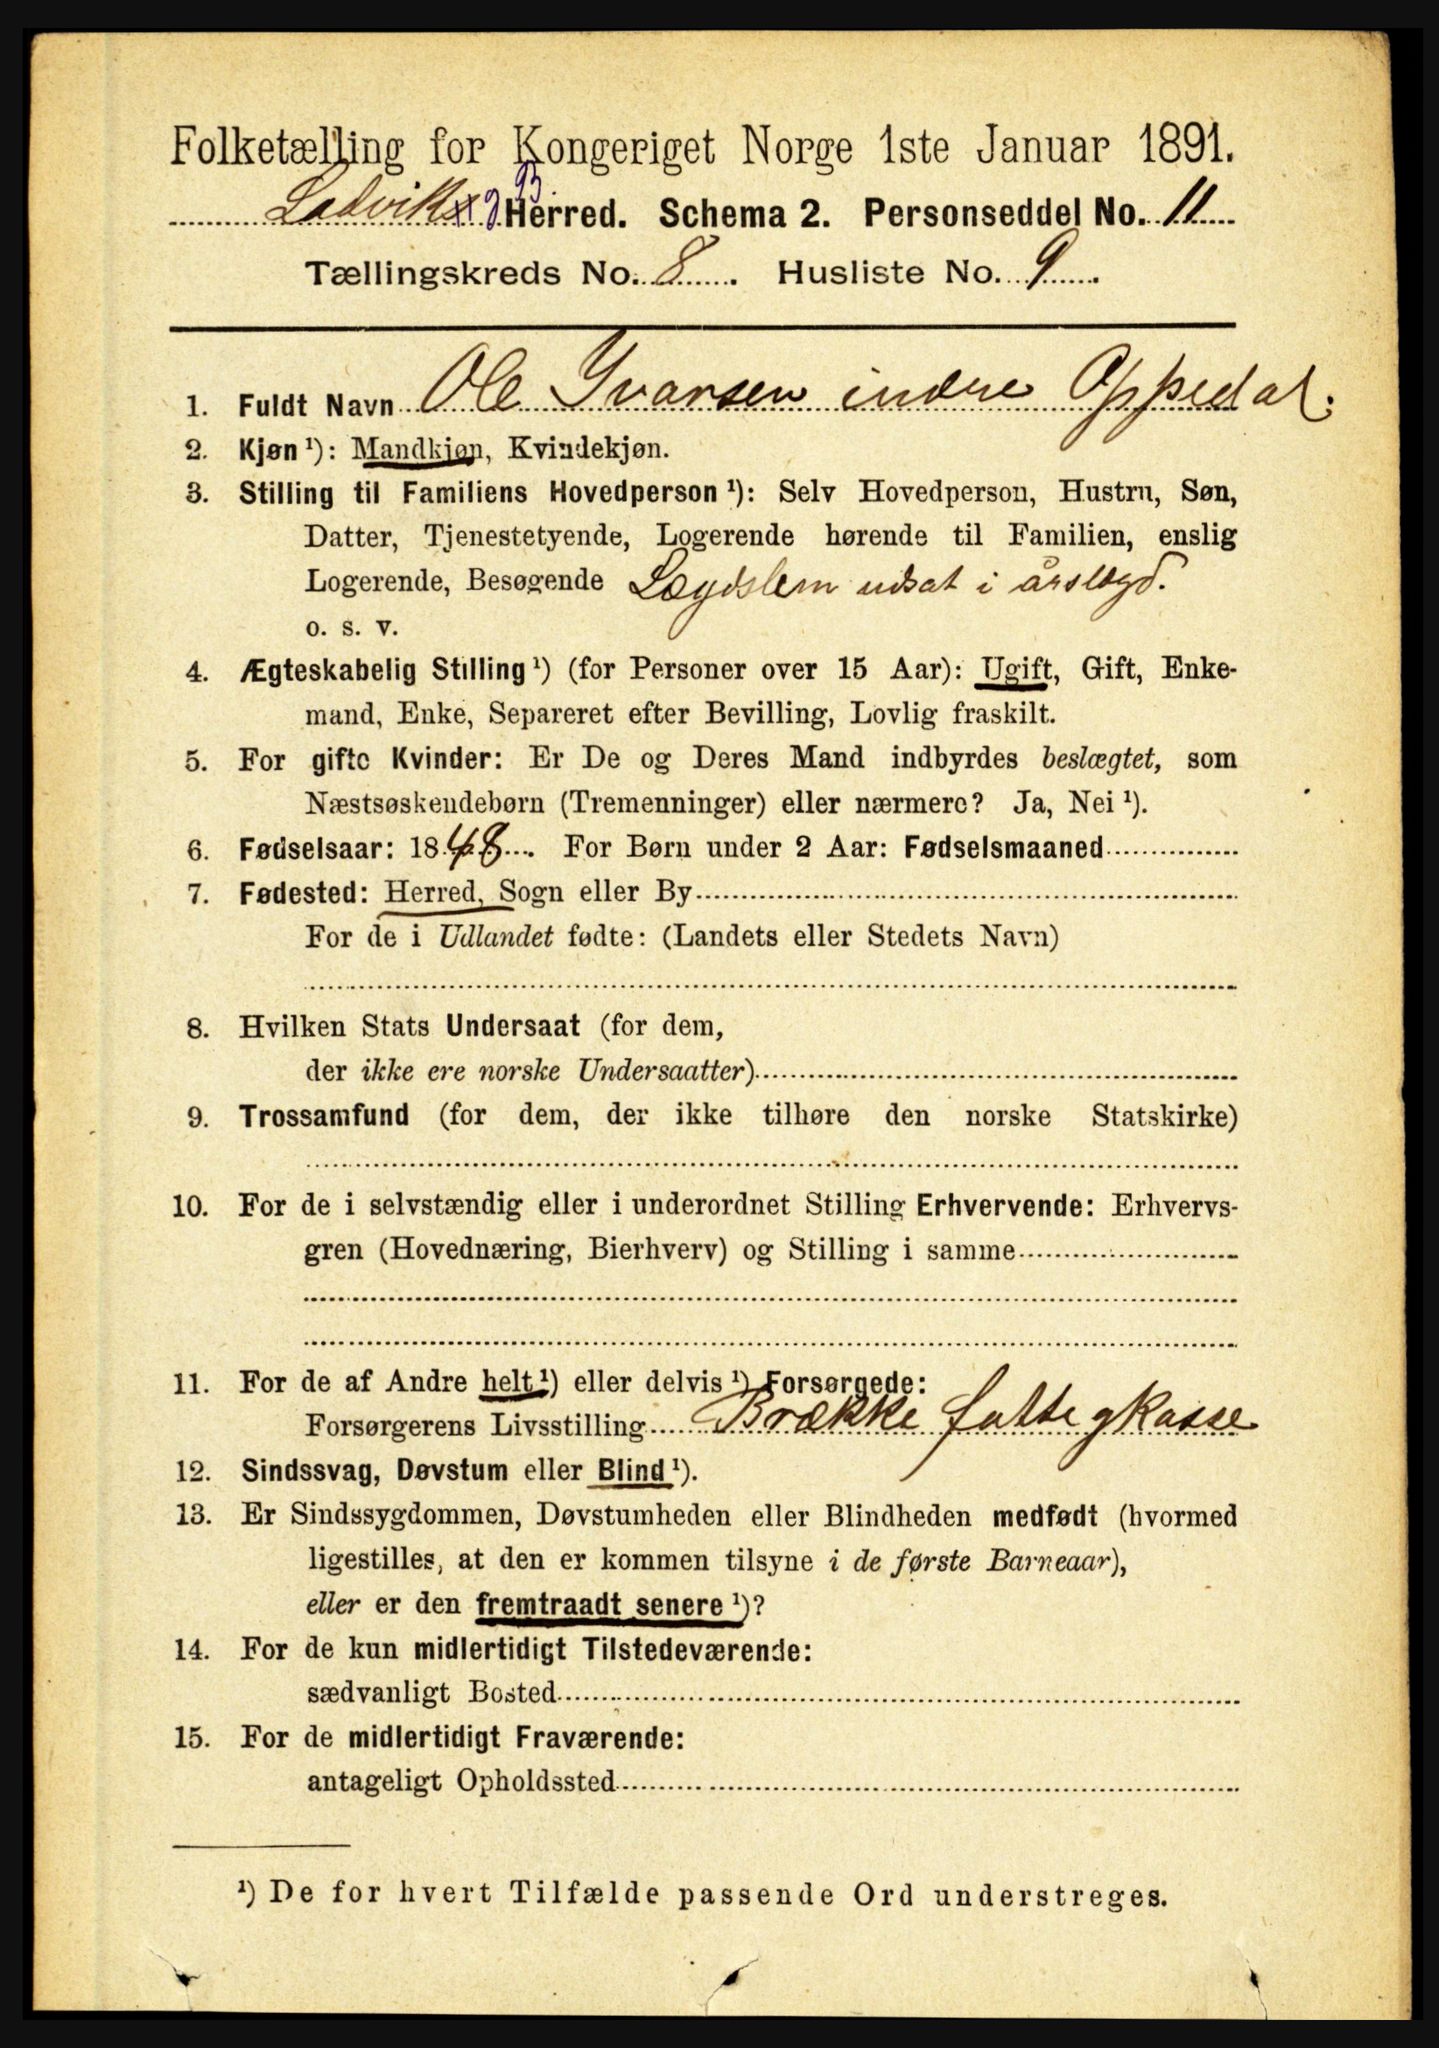 Folketælling for Kongeriget Norge 1ste Januar 1891.
Ladvik Herred. Schema 2. Personseddel No. 11
Tællingskreds No. 8. Husliste No. 9.
1. Fuldt Navn Ole Ivarsen indre Oppedal.
2. Kjøn ¹): Mandkjøn, Kvindekjøn.
3. Stilling til Familiens Hovedperson ¹): Selv Hovedperson, Hustru, Søn,
Datter, Tjenestetyende, Logerende hørende til Familien, enslig
Logerende, Besøgende Lægdslem udsat i årslægd.
o. s. v.
4. Ægteskabelig Stilling ¹) (for Personer over 15 Aar): Ugift, Gift, Enke-
mand, Enke, Separeret efter Bevilling, Lovlig fraskilt.
5. For gifte Kvinder: Er De og Deres Mand indbyrdes beslægtet, som
Næstsøskendebørn (Tremenninger) eller nærmere? Ja, Nei ¹).
6. Fødselsaar: 1848. For Børn under 2 Aar: Fødselsmaaned
7. Fødested: Herred, Sogn eller By
For de i Udlandet fødte: (Landets eller Stedets Navn)
8. Hvilken Stats Undersaat (for dem,
der ikke ere norske Undersaatter)
9. Trossamfund (for dem, der ikke tilhøre den norske Statskirke)
10. For de i selvstændig eller i underordnet Stilling Erhvervende: Erhvervs-
gren (Hovednæring, Bierhverv) og Stilling i samme
11. For de af Andre helt ¹) eller delvis ¹) Forsørgede:
Forsørgerens Livsstilling Brække fattigkasse
12. Sindssvag, Døvstum eller Blind ¹).
13. Er Sindssygdommen, Døvstumheden eller Blindheden medfødt (hvormed
ligestilles, at den er kommen tilsyne i de første Barneaar),
eller er den fremtraadt senere ¹)?
14. For de kun midlertidigt Tilstedeværende:
sædvanligt Bosted
15. For de midlertidigt Fraværende:
antageligt Opholdssted
¹) De for hvert Tilfælde passende Ord understreges.